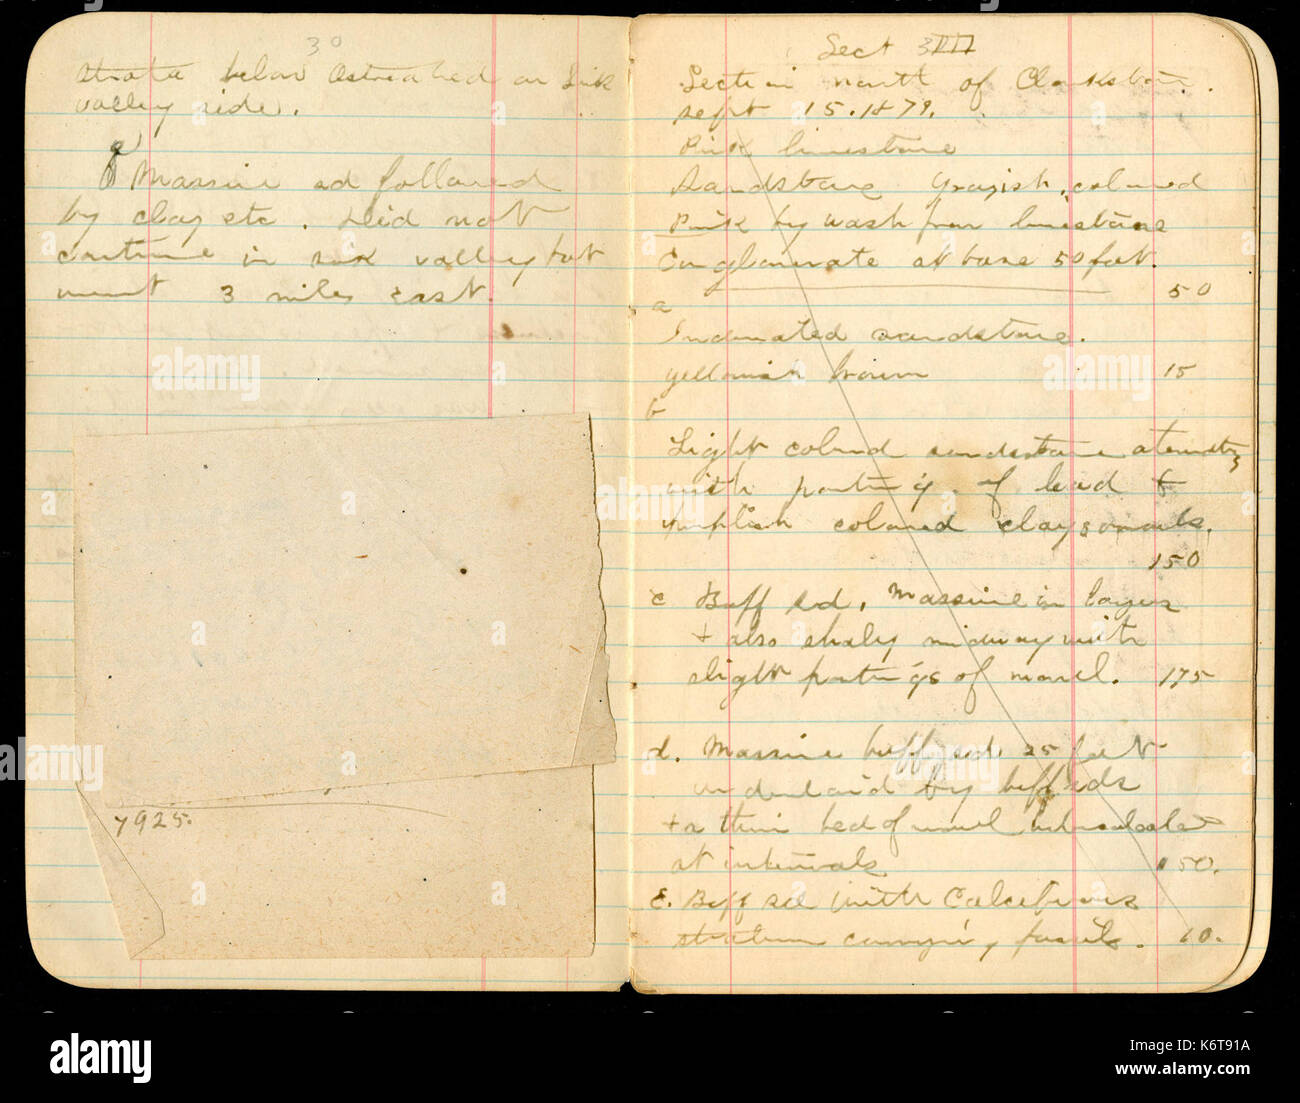 30
strata below Ostrea bed on Sink
valley side.
Massive sd followed
by clay etc. Did not
continue in sink valley but
went 3 miles East.
7925.
Sect 3
Section north of Clarkston.
Sept 15. 1879.
Pink limestone
Sandstone Grayish colored
Pink by wash from limestone
Conglomerate at base 50 feet.
50
a
Indurated sandstone.
yellowish brown 15
b
Light colored sandstone
with partings of lead &
purplish colored clays marls.
150
c Buff sd. Massive in layers
+ also shaly midway with
slight partings of marl. 175
d. Massive buff sd 25 feet
underlaid by buff sds
+ a thin bed of marl
at intervals 150.
e. Buff sd with Calciferous
stratum carrying fossils. 10.
alamy
alamy
Image ID: K6T91A
www.alamy.com